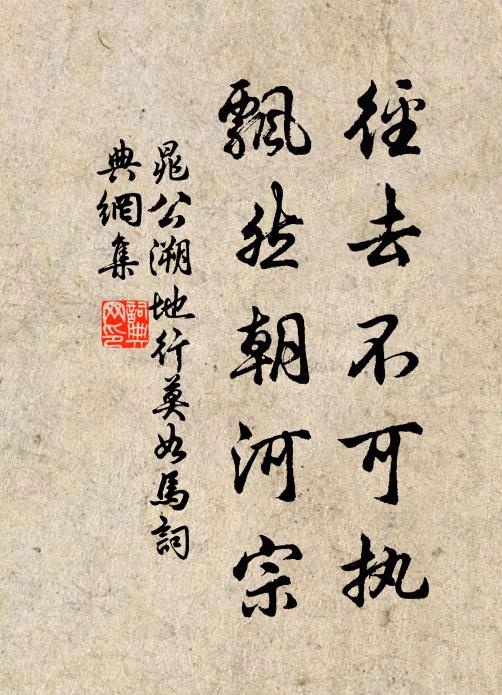 徑去不可执
飄然朝河宗
晁公溯地行莫如馬詞
典網集
詞典
网印